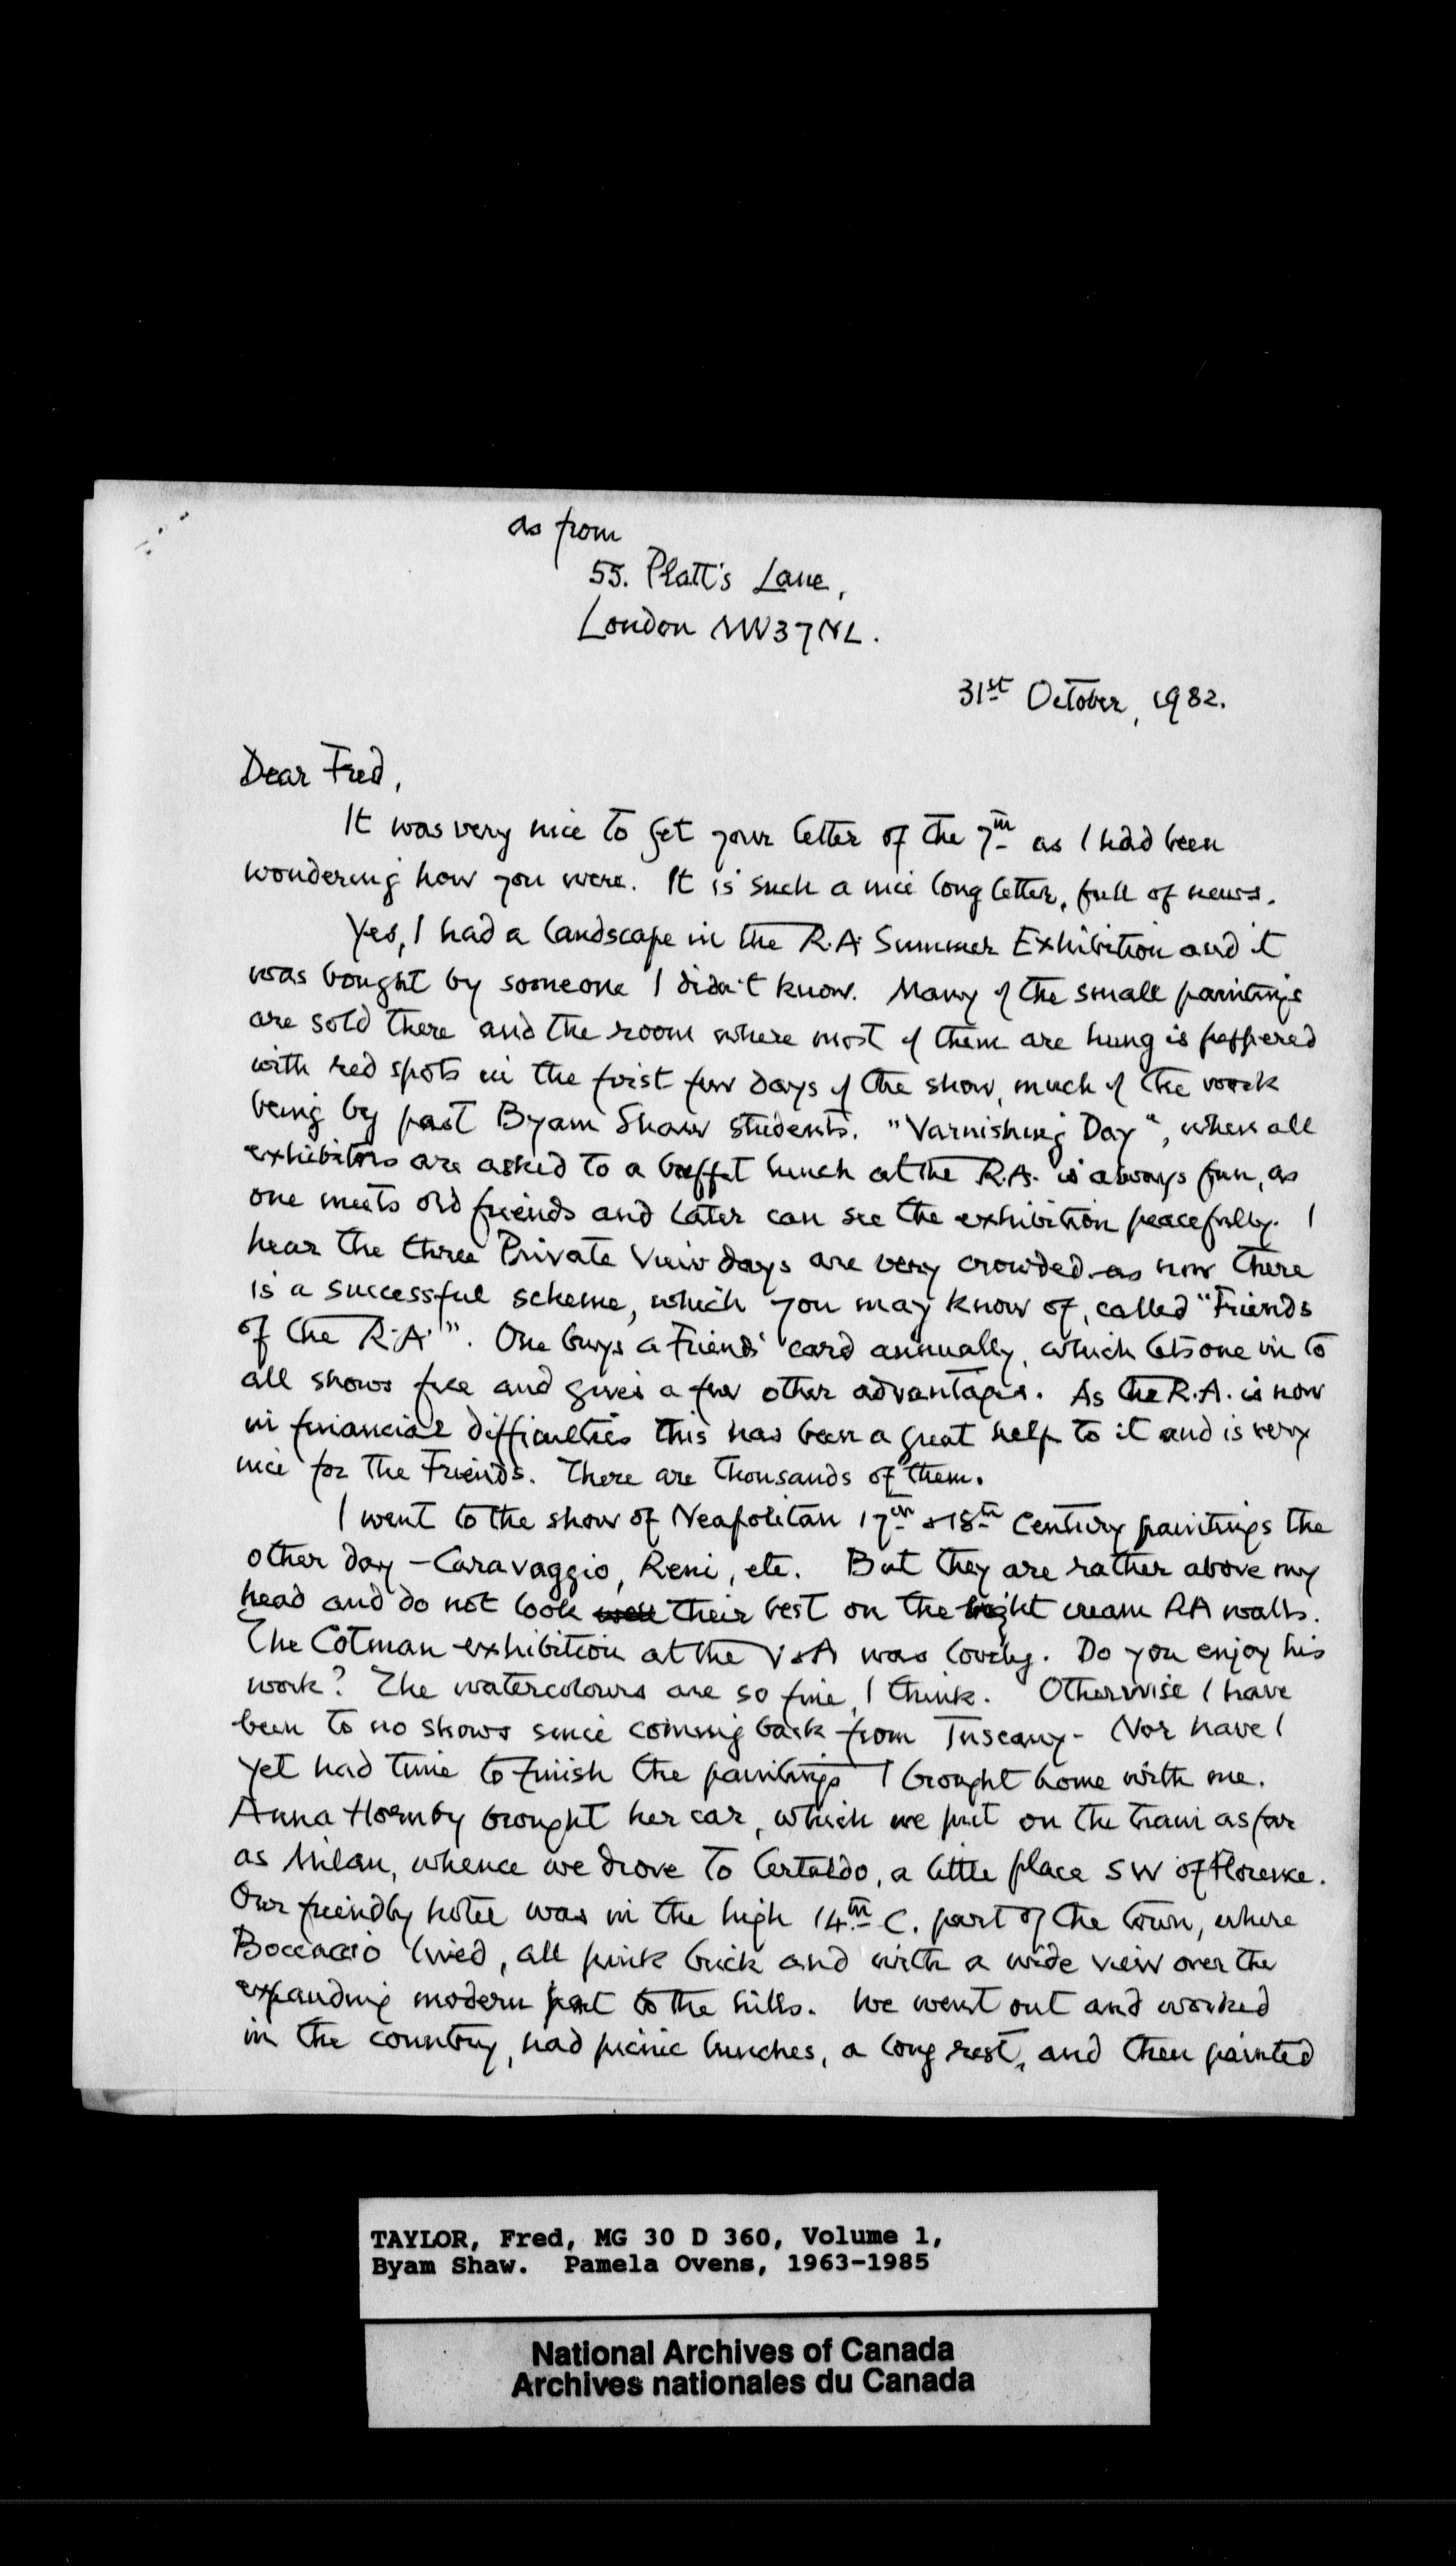 as from
55. Platt's Lane,
London NW3 7NL.
31st October, 1982.
Dear Fred,
It was very nice to get your letter of the 7th as I had been
wondering how you were. It is such a nice long letter, full of news.
Yes, I had a landscape in the R.A. Summer Exhibition and it
was bought by someone I didn't know. Many of the small paintings
are sold there and the room where most of them are hung is peppered
with red spots in the first few days of the show, much of the work
being by past Byam Shaw students. "Varnishing Day", when all
exhibitors are asked to a buffet lunch at the R.A. is always fun, as
one meets old friends and later can see the exhibition peacefully. I
hear the three Private View days are very crowded as now there
is a successful scheme, which you may know of, called "Friends
of the R.A.". One buys a Friends' card annually, which lets one in to
all shows free and gives a few other advantages. As the R.A. is now
in financial difficulties this has been a great help to it and is very
nice for the Friends. There are thousands of them.
I went to the show of Neapolitan 17th & 18th Century paintings the
other day - Caravaggio, Reni, etc. But they are rather above my
head and do not look well their best on the light cream RA walls.
The Cotman exhibition at the V&A was lovely. Do you enjoy his
work? The watercolours are so fine, I think. Otherwise I have
been to no shows since coming back from Tuscany - Nor have I
yet had time to finish the paintings I brought home with me.
Anna Hornby brought her car, which we put on the train as far
as Milan, whence we drove to Certaldo, a little place SW of Florence.
Our friendly hotel was in the high 14th C. part of the town, where
Boccaccio lived, all pink brick and with a wide view over the
expanding modern part to the hills. We went out and worked
in the country, had picnic lunches, a long rest, and then painted
TAYLOR, Fred, MG 30 D 360, Volume 1,
Byam Shaw. Pamela Ovens, 1963-1985
National Archives of Canada
Archives nationales du Canada